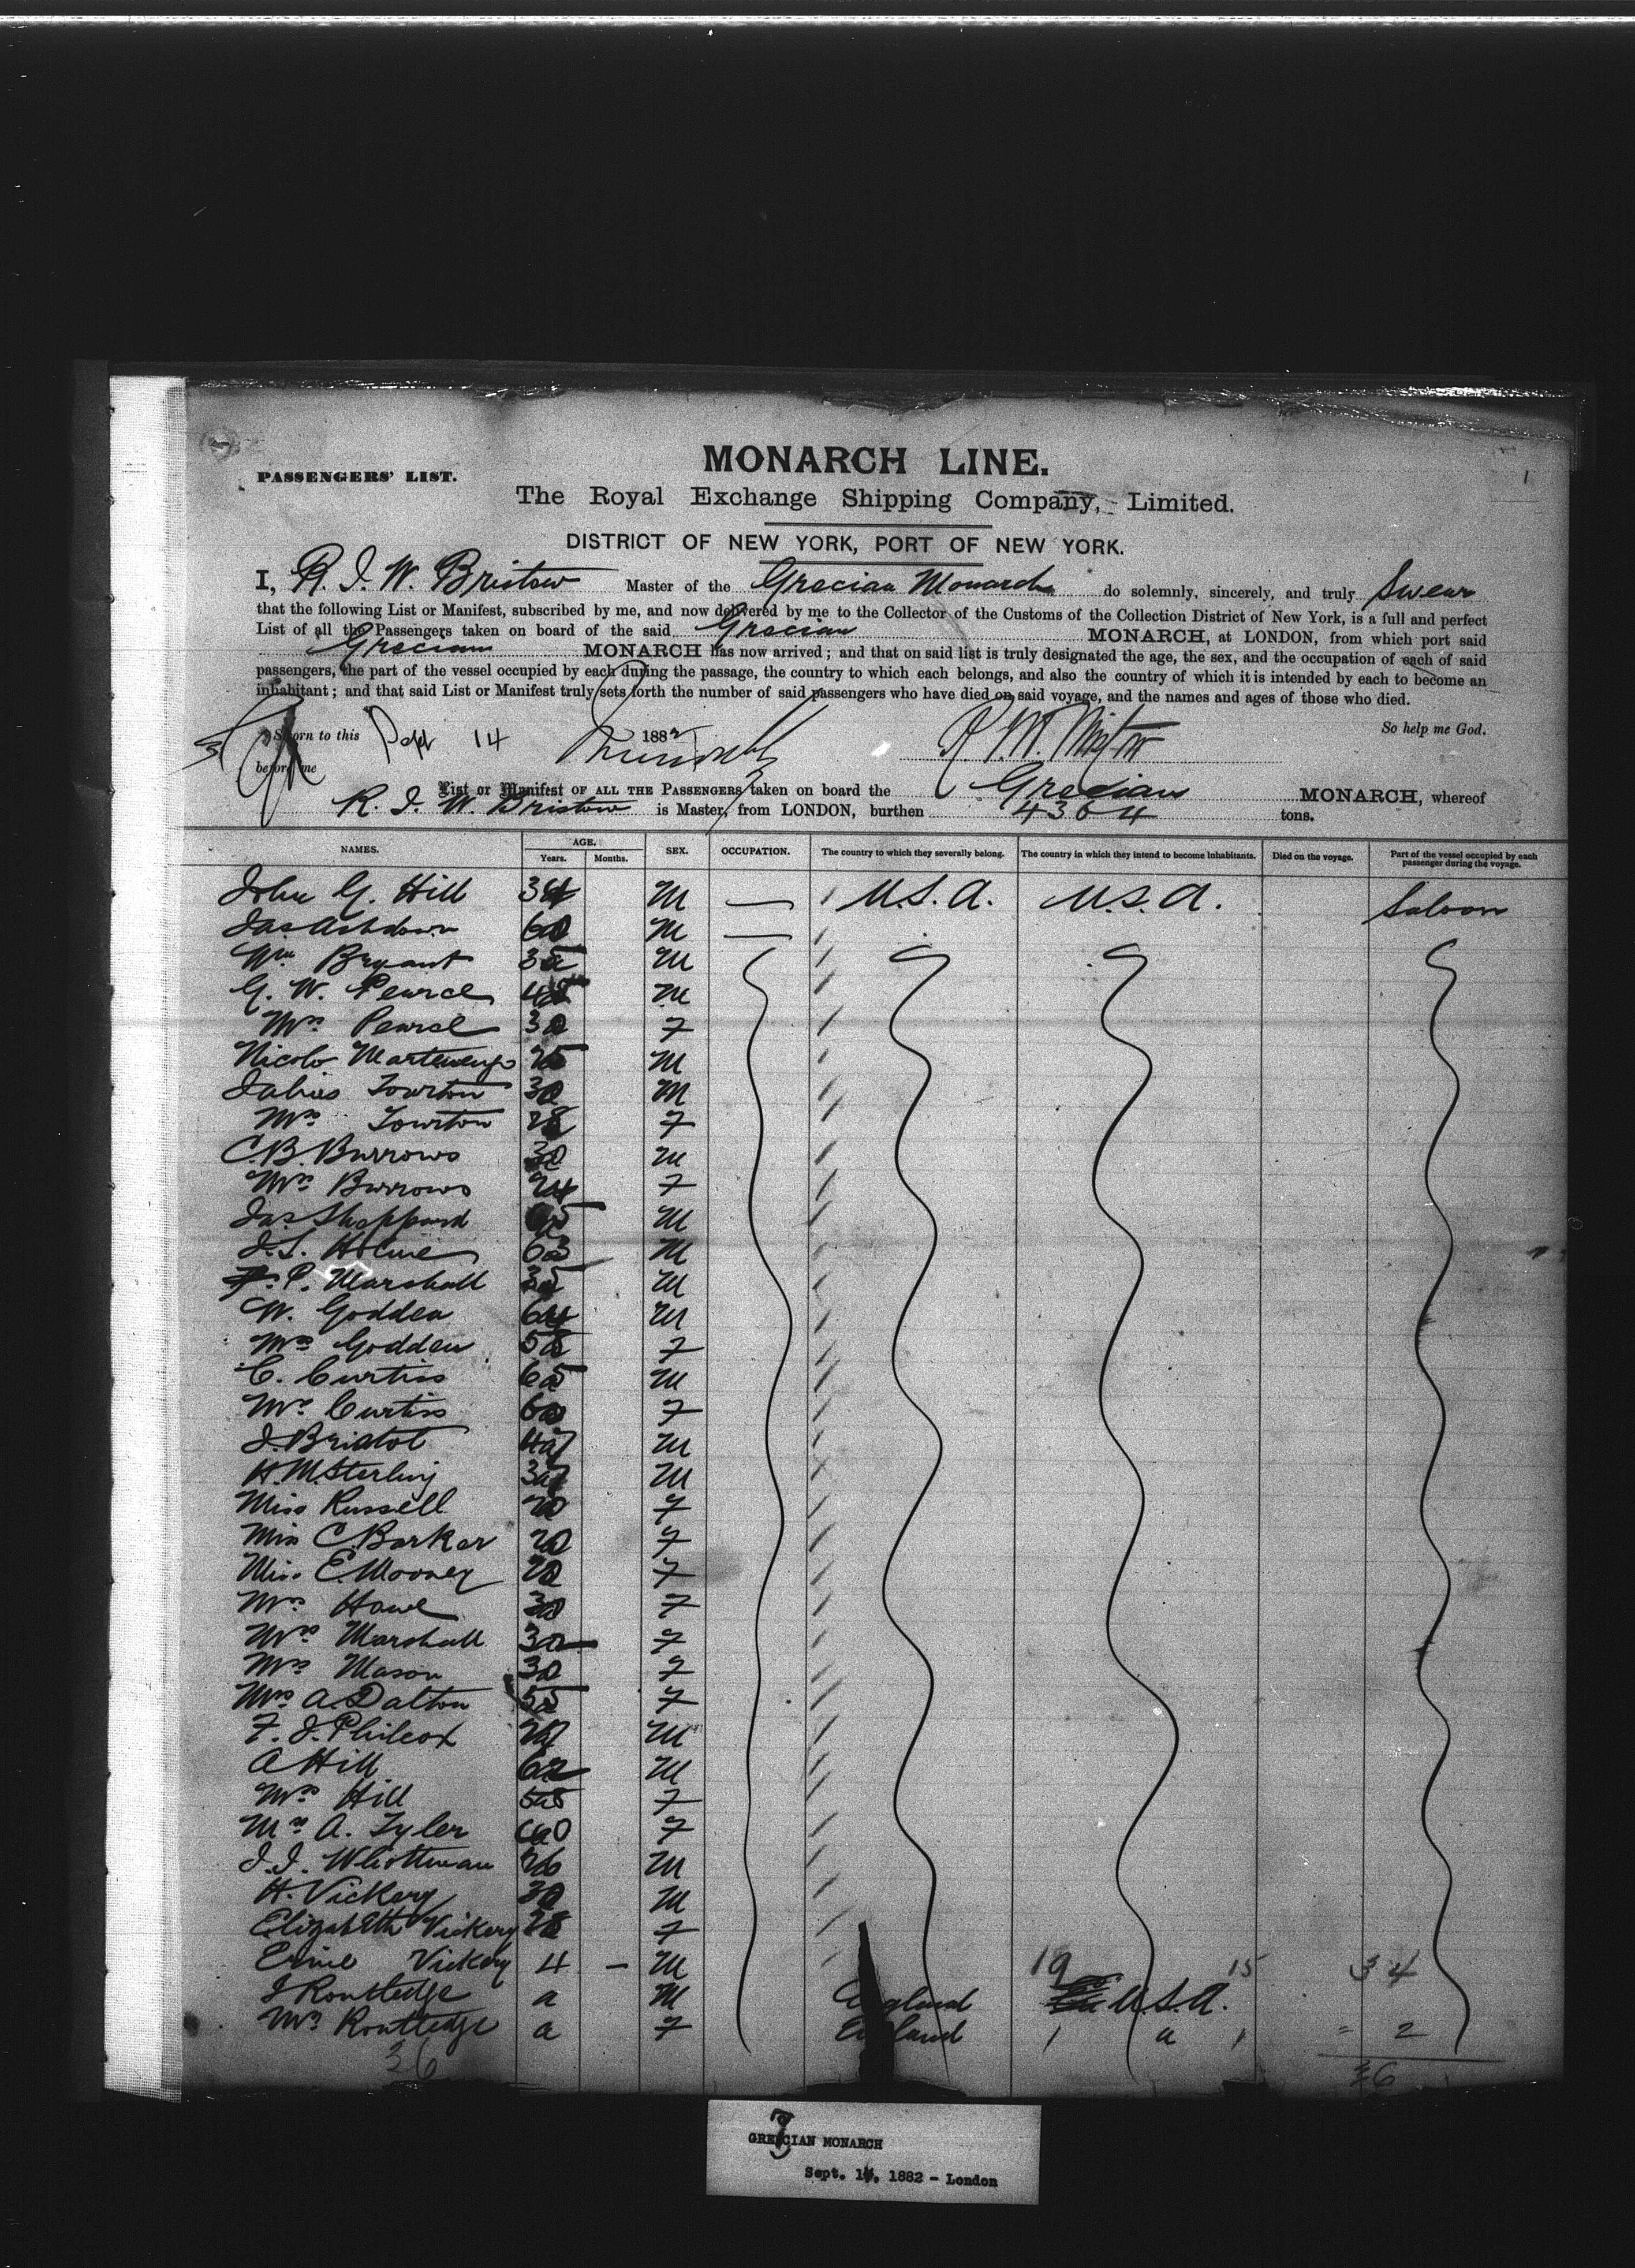 1
PASSENGERS' LIST.
MONARCH LINE.
The Royal Exchange Shipping Company, Limited.
DISTRICT OF NEW YORK, PORT OF NEW YORK.
I, R. J. W. Bristow Master of the Grecian Monarch do solemnly, sincerely, and truly Swear
that the following List or Manifest, subscribed by me, and now delivered by me to the Collector of the Customs of the Collection District of New York, is a full and perfect
List of all the Passengers taken on board of the said Grecian MONARCH, at LONDON, from which port said
Grecian MONARCH has now arrived; and that on said list is truly designated the age, the sex, and the occupation of each of said
passengers, the part of the vessel occupied by each during the passage, the country to which each belongs, and also the country of which it is intended by each to become an
inhabitant; and that said List or Manifest truly sets forth the number of said passengers who have died on said voyage, and the names and ages of those who died.
So help me God.
Sworn to this Sept 14 1882
before me
List or Manifest OF ALL THE PASSENGERS taken on board the Grecian MONARCH, whereof
R. J. W. Bristow is Master, from LONDON, burthen 4364 tons.
NAMES. AGE. Years. Months. SEX. OCCUPATION. The country to which they severally belong. The country in which they intend to become inhabitants. Died on the voyage. Part of the vessel occupied by each passenger during the voyage.
John G. Hill 34 M — U.S.A. U.S.A. Saloon
Jas Ashdown 60 M —
Wm Bryant 35 M
G. W. Pearce 48 M
Mrs Pearce 30 F
Nicolo 25 M
Tourton 30 M
Mrs Tourton 28 F
C. B. Burrows 30 M
Mrs Burrows 24 F
Jas Sheppard M
J. S. Holme 63 M
P. Marshall 35 M
W. Godden 64 M
Mrs Godden 58 F
C. Curtiss 65 M
Mrs Curtiss 60 F
J. Bristol 47 M
H. M. Sterling 37 M
Miss Russell 20 F
Miss C. Barkar 20 F
Miss E. Mooney 20 F
Mrs Howe 30 F
Mrs Marshall 32 F
Mrs Mason 30 F
Mrs A. Dalton 55 F
F. J. Philcox 27 M
A Hill 62 M
Mrs Hill 55 F
Mrs A. Tyler 60 F
J. J. 26 M
H. Vickery 30 M
Elizabeth Vickery 28 F
Ernie Vickery 4 — M 19 15 34
J Routledge a M England U.S.A.
Mrs Routledge a F England 1 a 1 = 2
36 36
GRECIAN MONARCH
Sept. 14, 1882 - London